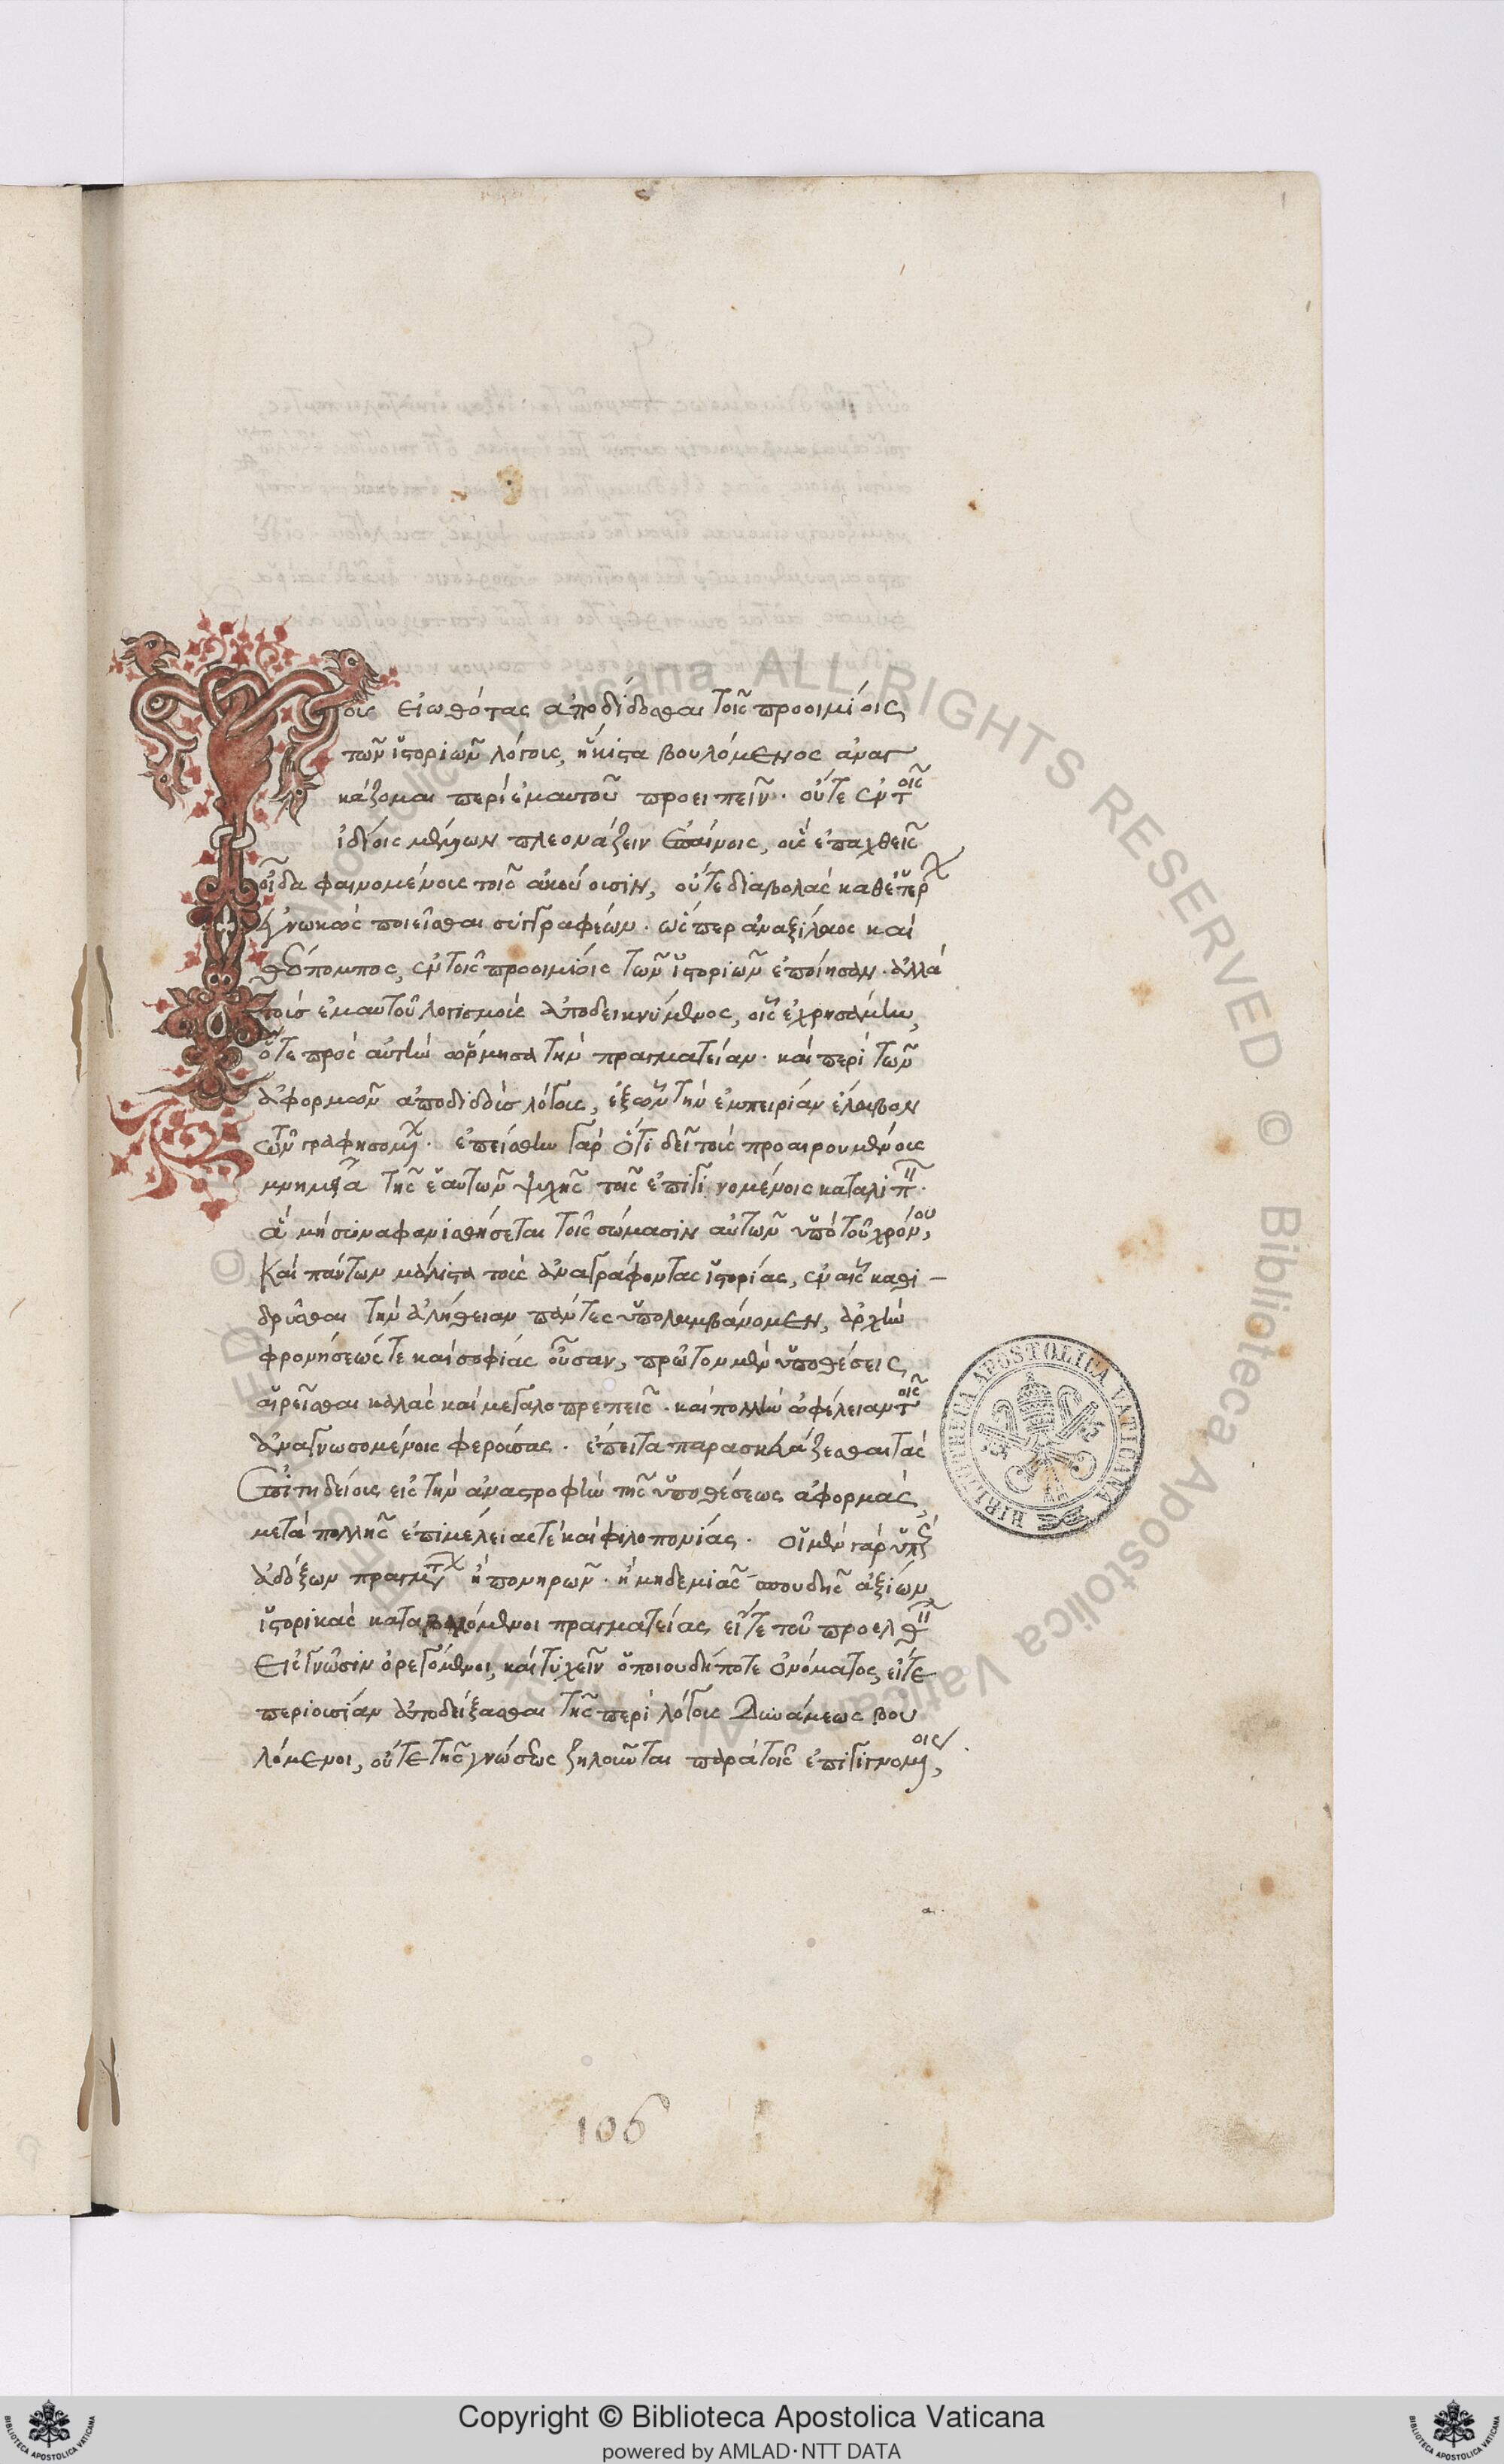 Τοὺς εἰωθότας ἀποδίδοσθαι τοῖς προοιμίοις
τῶν ἱστοριῶν λόγους, ἥκιστα βουλόμενος ἀναγ
κάζομαι περὶ ἐμαυτοῦ προειπεῖν. οὔτε ἐν τοῖς
ἰδίοις μέλλων πλεονάζειν ἐπαίνοις, οὓς ἐπαχθεῖς
οἶδα φαινομένους τοῖς ἀκούουσιν, οὔτε διαβολὰς καθ' ἑτέρων
ἐγνωκὼς ποιεῖσθαι συγγραφέων. ὥσπερ ἀναξίλαος καὶ
θεόπομπος, ἐν τοῖς προοιμίοις τῶν ἱστοριῶν ἐποίησαν. ἀλλὰ
τοὺς ἐμαυτοῦ λογισμοὺς ἀποδεικνύμενος, οἷς ἐχρησάμην,
ὅτε πρὸς αὐτὴν ὥρμησα τὴν πραγματείαν. καὶ περὶ τῶν
ἀφορμῶν ἀποδιδοὺς λόγους, ἐξ ὧν τὴν ἐμπειρίαν ἔλαβον
τῶν γραφησομένων. ἐπείσθην γὰρ ὅτι δεῖ τοὺς προαιρουμένους
μνημεῖα τῆς ἑαυτῶν ψυχῆς τοῖς ἐπιγινομένοις καταλιπεῖν.
ἃ μὴ συναφανισθήσεται τοῖς σώμασιν αὐτῶν ὑπὸ τοῦ χρόνου,
Καὶ πάντων μάλιστα τοὺς ἀναγράφοντας ἱστορίας, ἐν αἷς καθι-
δρῦσθαι τὴν ἀλήθειαν πάντες ὑπολαμβάνομεν, ἀρχὴν
φρονήσεώς τε καὶ σοφίας οὖσαν, πρῶτον μὲν ὑποθέσεις
αἱρεῖσθαι καλὰς καὶ μεγαλοπρεπεῖς. καὶ πολλὴν ὠφέλειαν τοῖς
ἀναγνωσομένοις φερούσας. ἔπειτα παρασκευάζεσθαι τὰς
ἐπιτηδείους εἰς τὴν ἀναστροφὴν τῆς ὑποθέσεως ἀφορμάς,
μετὰ πολλῆς ἐπιμελείας τε καὶ φιλοπονίας. οἱ μὲν γὰρ ὑπὲρ
ἀδόξων πραγμάτων ἢ πονηρῶν. ἢ μηδεμιᾶς σπουδῆς ἀξίων
ἱστορικὰς καταβαλόμενοι πραγματείας εἴτε τοῦ προελθεῖν
εἰς γνῶσιν ὀρεγόμενοι, καὶ τυχεῖν ὁποιουδήποτε ὀνόματος, εἴτε
περιουσίαν ἀποδείξασθαι τῆς περὶ λόγους δυνάμεως βου
λόμενοι, οὔτε τῆς γνώσεως ζηλοῦνται παρὰ τοῖς ἐπιγιγνομένοις,
a.
106
BIBLIOTHECA APOSTOLICA VATICANA
© Biblioteca Apostolica Vaticana ALL RIGHTS RESERVED © Biblioteca Apostolica Vaticana ALL RIGHTS RESERVED
Copyright © Biblioteca Apostolica Vaticana
powered by AMLAD·NTT DATA